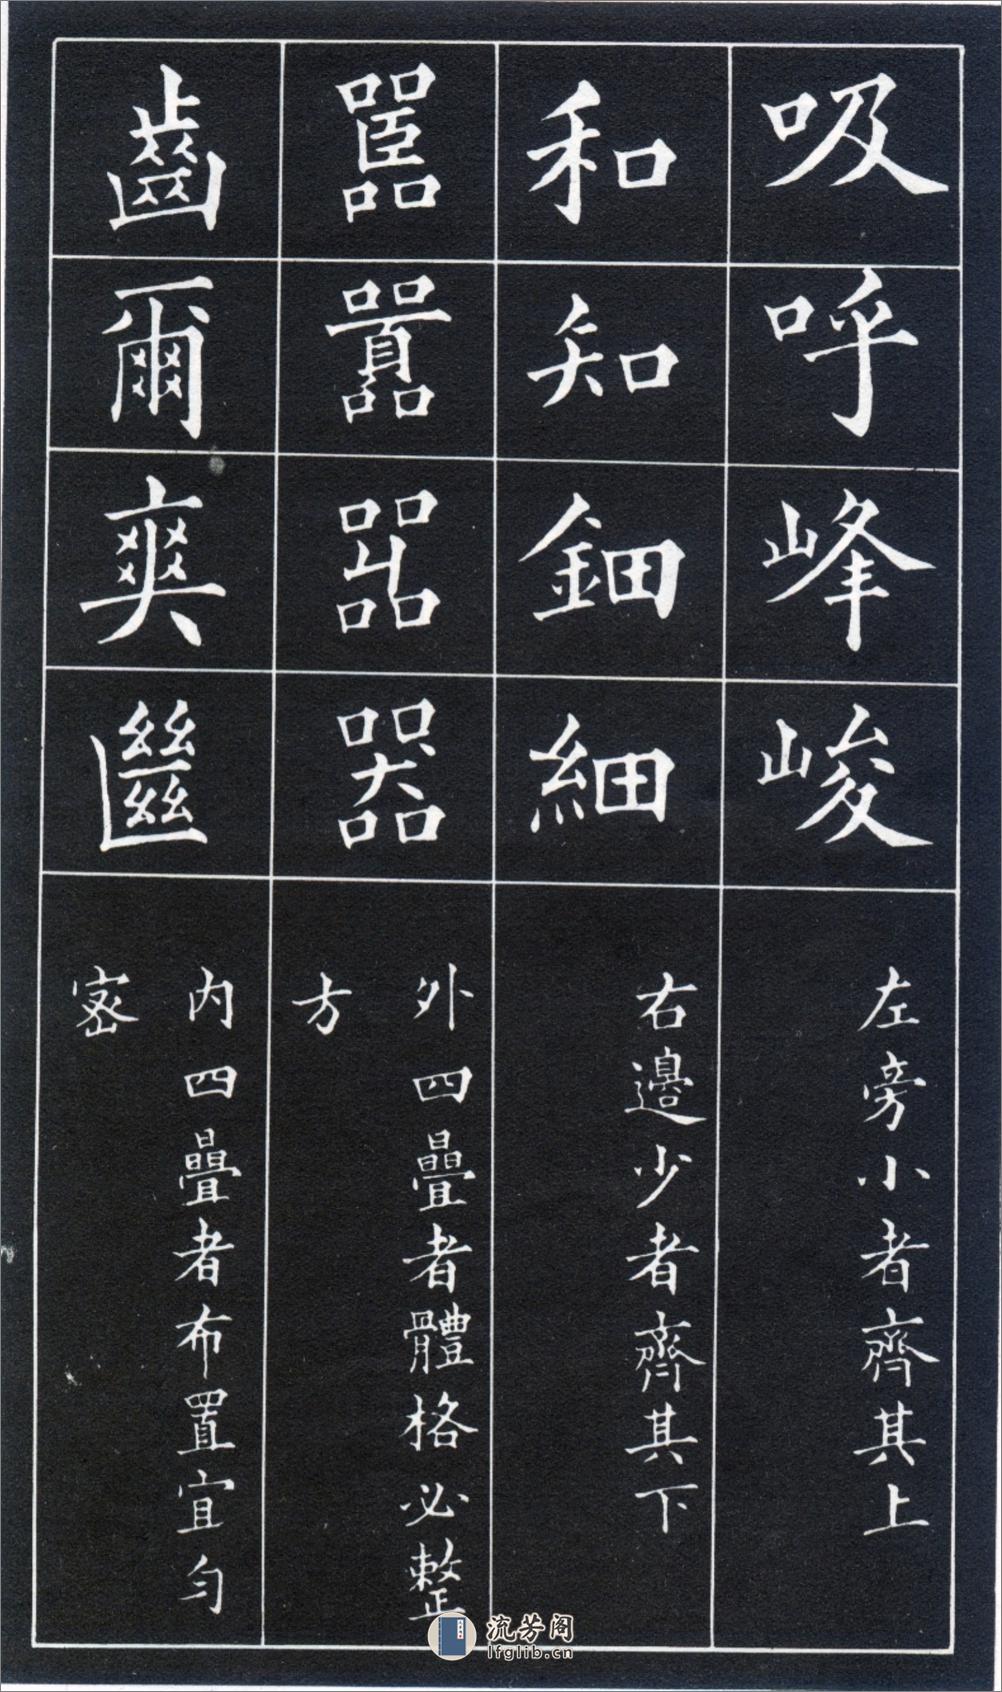 吸呼峰峻
左旁小者齊其上
和知鈿細
右邊少者齊其下
嚚囂嘂器
外四疊者體格必整
方
齒爾爽㡭
內四疊者布置宜勻
密
流芳阁
lfglib.cn